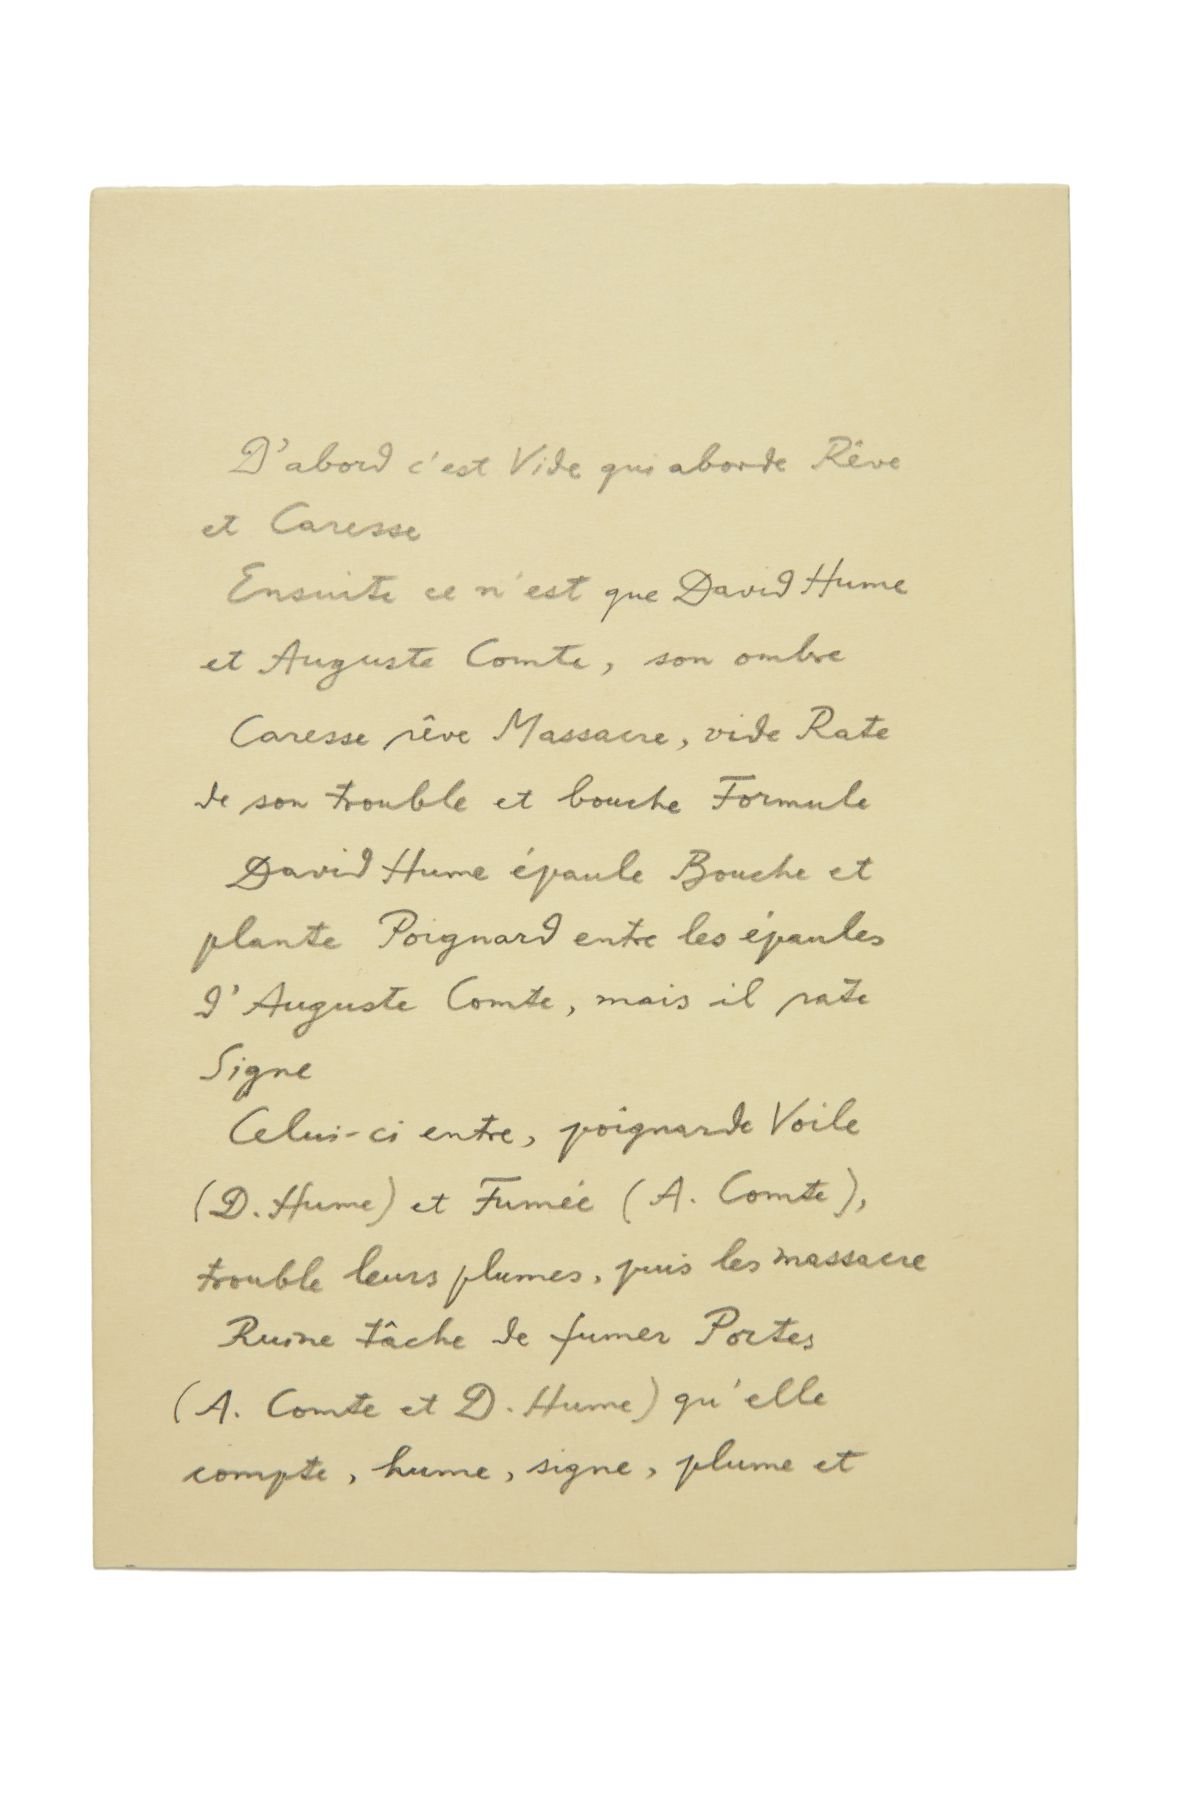 D'abord c'est Vide qui aborde Rêve
et Caresse
Ensuite ce n'est que David Hume
et Auguste Comte, son ombre
Caresse rêve Massacre, vide Rate
de son trouble et bouche Formule
David Hume épaule Bouche et
plante Poignard entre les épaules
d'Auguste Comte, mais il rate
Signe
Celui-ci entre, poignarde Voile
(D. Hume) et Fumée (A. Comte),
trouble leurs plumes, puis les massacre
Ruine tâche de fumer Portes
(A. Comte et D. Hume) qu'elle
compte, hume, signe, plume et